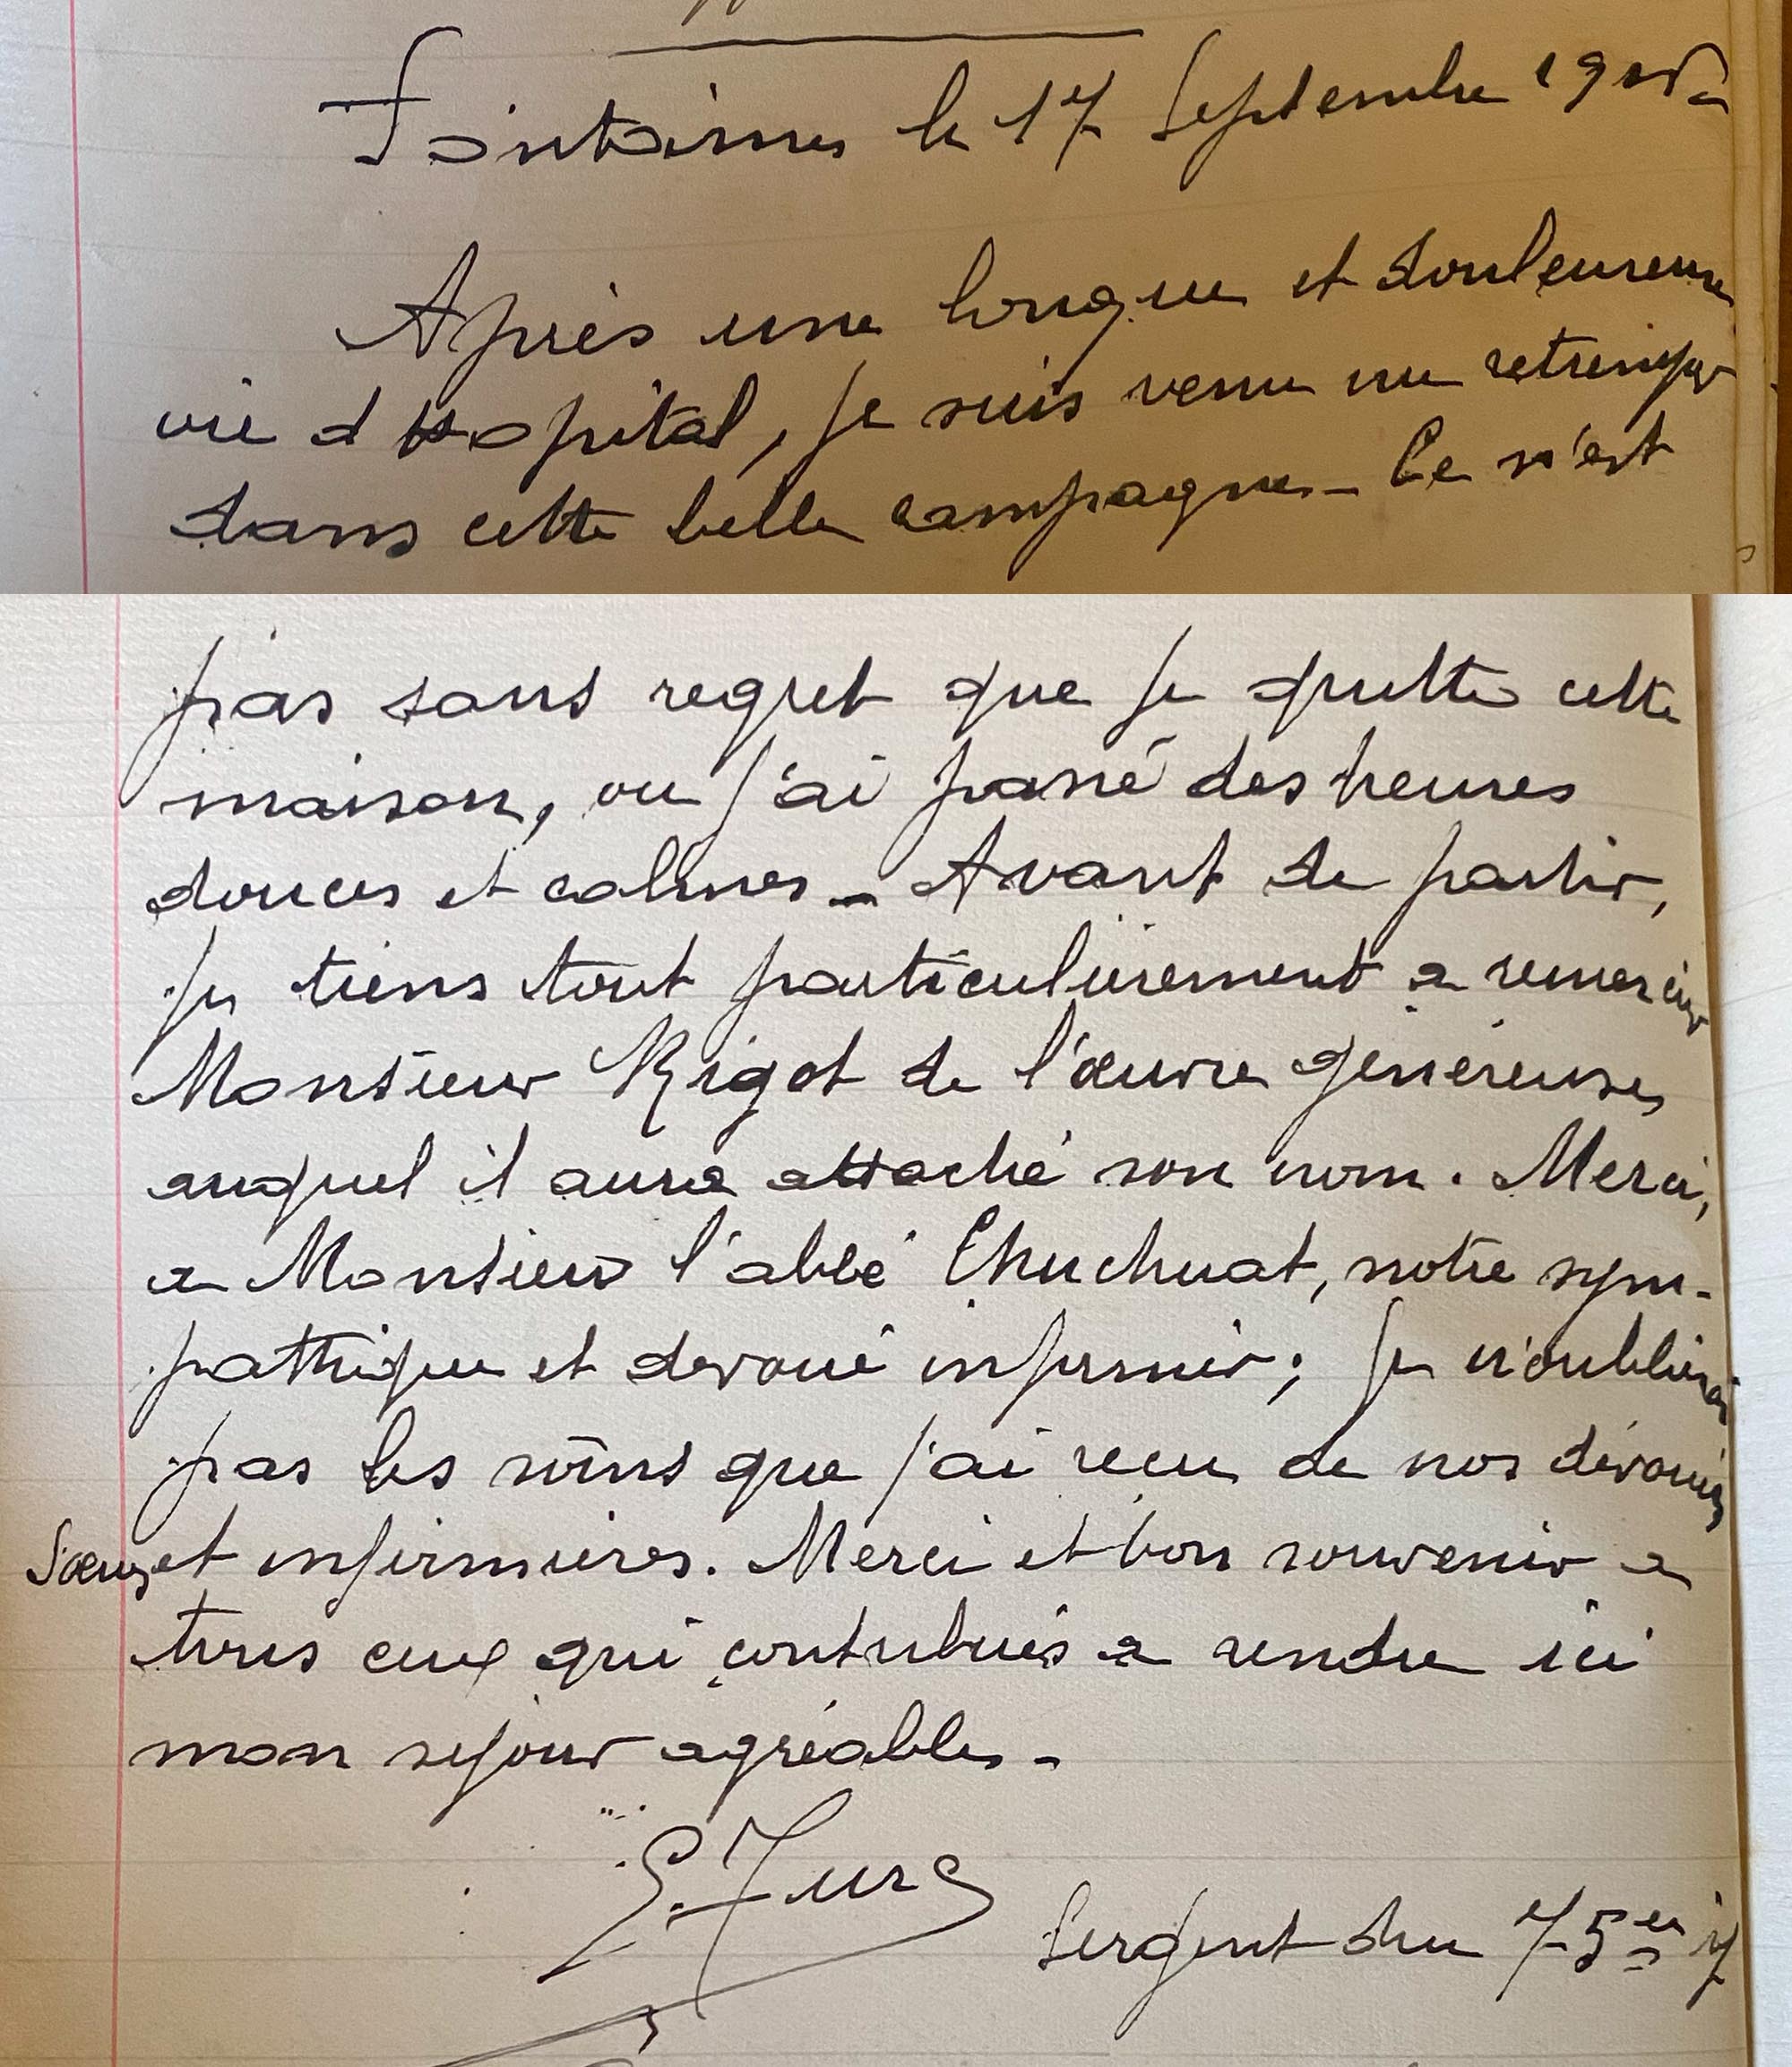 Fontaines le 17 Septembre 1915
Après une longue et douleureuse
vie d'Hopital, je suis venu me retremper
dans cette belle campagne_ Ce n'est
pas sans regret que je quitte cette
maison, ou j'ai passé des heures
douces et calmes_ Avant de partir,
je tiens tout particulièrement a remercier
Monsieur Rigot de l'œuvre généreuse,
auquel il aura attaché son nom. Merci,
a Monsieur l'abbé Chuchuat, notre sym-
pathique et devoué infirmier; je n'oublierai
pas les soins que j'ai recu de nos dévouées
Sœurs et infirmières. Merci et bon souvenir a
tous ceux qui contribués a rendre ici
mon sejour agréable_
Sergent du 75e